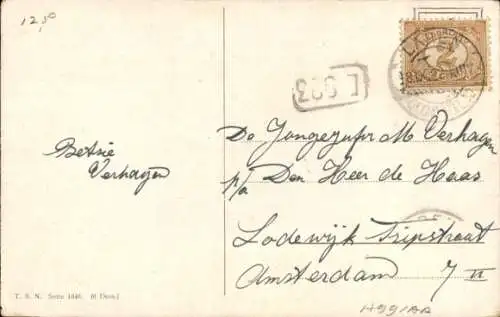 12,50
L 993
De Jongejufr M Verhagen
p/a Den Heer de Haas
Lodewijk Tripstraat
Amsterdam 7 II
Betsie
Verhagen
T. S. N. Serie 1846. (6 Dess.)